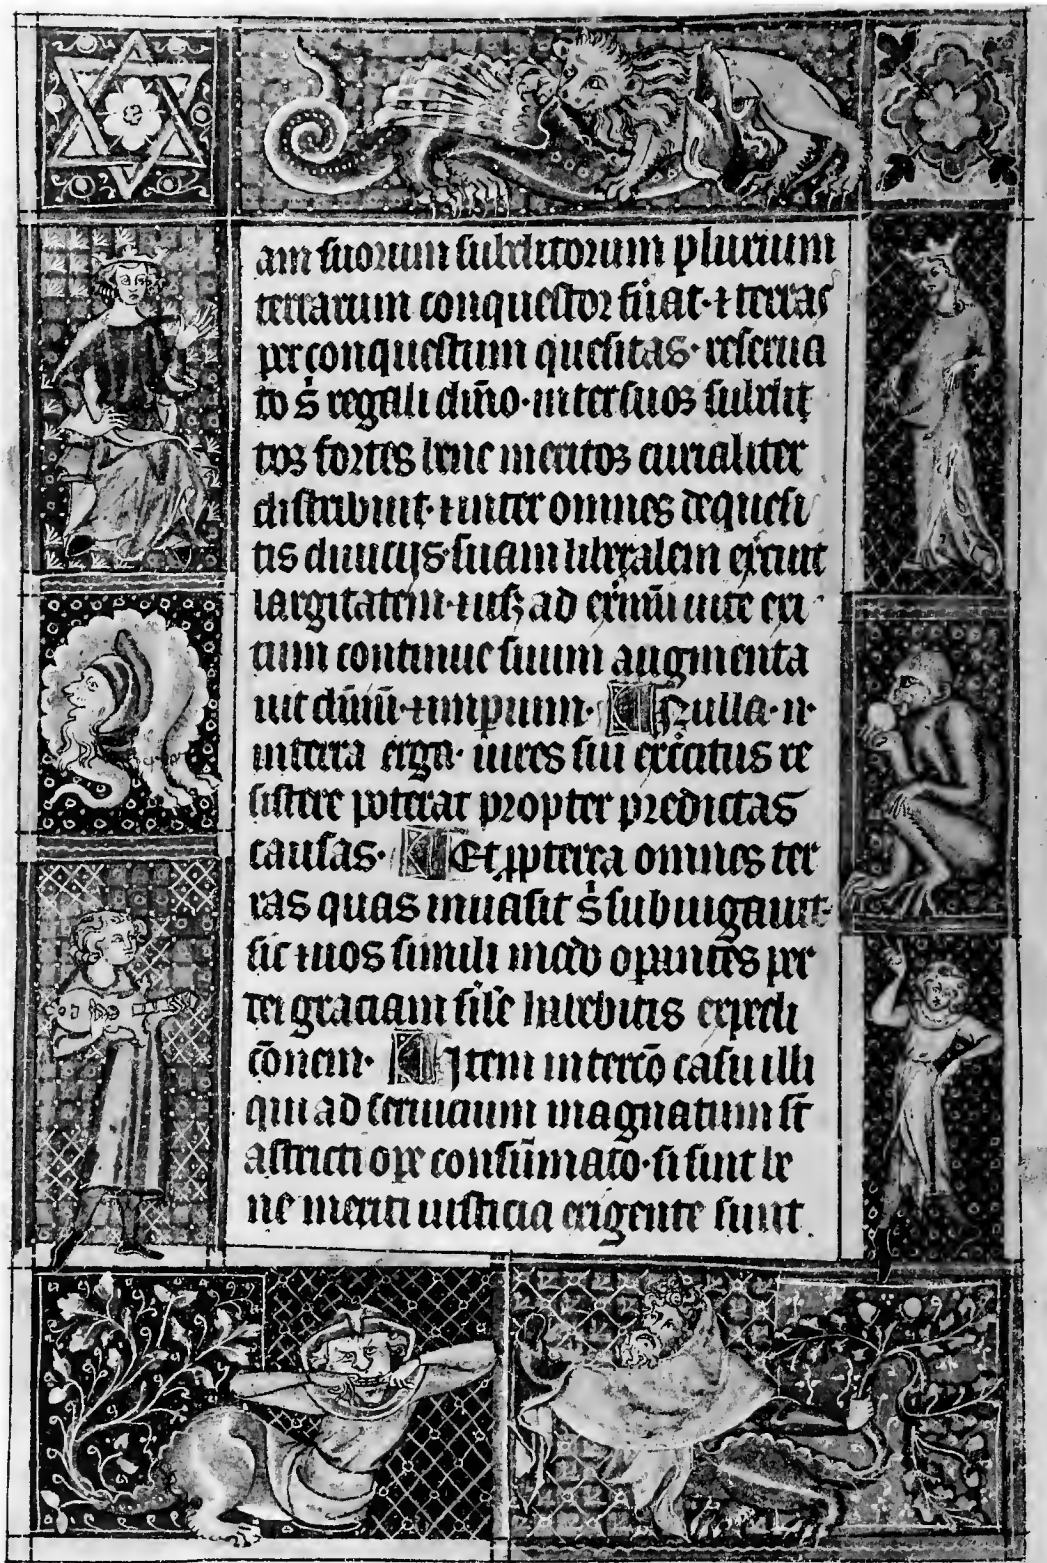 am suorum subditorum plurium
terrarum conquestor fuat · ⁊ terras
per conquestum quesitas · reserua
to s regali dn̄io · inter suos subdit
tos fortes bene meritos curialiter
distribuit · ⁊ inter omnes de quesi
tis diuicijs · suam liberalem exercuit
largitatem · ⁊ usqꝫ ad extīmū uite exi
tum continue suum augmenta
uit dn̄iū · ⁊ imperium ·
in terra erga · uires sui exercitus re
sistere poterat propter predictas
causas · Et propterea omnes ter
ras quas inuasit s subiugauit ·
sic ⁊ uos simili modo operantes per
dei graciam sil̄e habebitis expedi
c̄onem · Item in terc̄o casu illi
qui ad seruicium magnatum st̄
astricti ope consūmato · si sint be
ne meriti iusticia exigente sunt